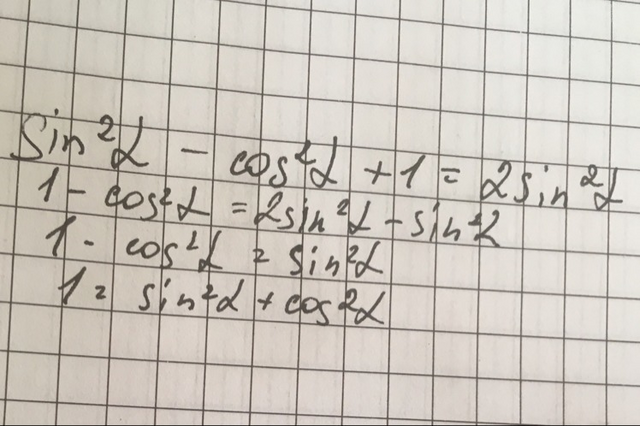 Sin²α - cos²α + 1 = 2sin²α
1 - cos²α = 2sin²α - sin²α
1 - cos²α = sin²α
1 = sin²α + cos²α